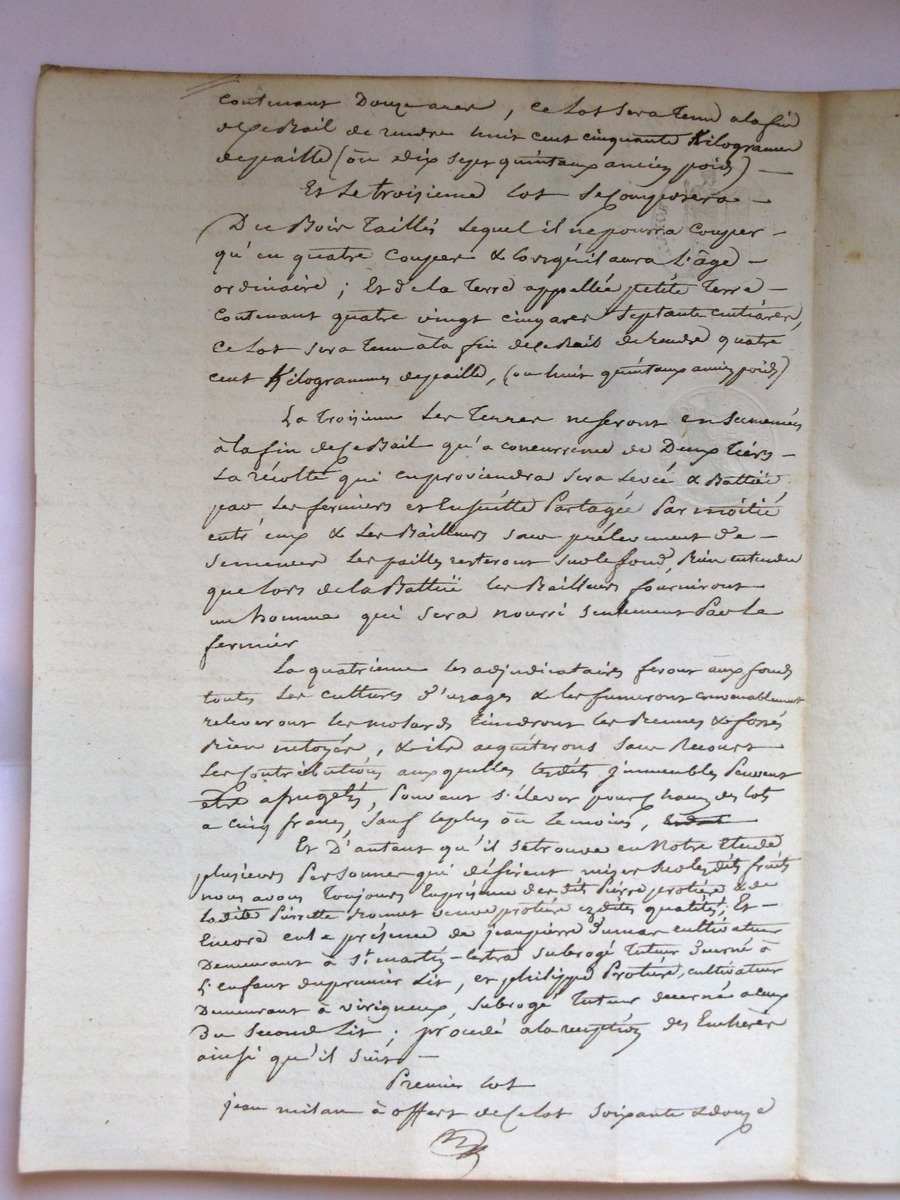 contenant Douze ares, ce lot sera tenu a la fin
de ce Bail de rendre huit cent cinquante Kilogrammes
de paille (ou dix sept quintaux ancien poids)
Et Le troisieme lot se Composera
Du Bois Taillis lequel il ne pourra Couper
qu'en quatre Coupes & lorsqu'il aura L'âge
ordinaire ; Et de la Terre appellée petite Terre
Contenant quatre vingt cinq ares septante centiares,
Ce lot sera tenu à la fin de ce Bail de rendre quatre
cent Kilogrammes de paille, (ou huit quintaux ancien poids)
La Troisieme Les Terres ne seront ensemencées
à la fin de ce Bail qu'a concurrence de Deux tiers
La récolte qui en proviendra sera Levée & Battüe
par Les fermiers et Ensuitte Partagée Par moitié
entr'eux & Les Bailleurs sans prélevement de
semences Les pailles resteront sur le fond, Bien entendu
que lors de la Battüe les Bailleurs fourniront
un homme qui sera nourri seulement Par le
fermier
La quatrieme les adjudicataires feront aux fonds
toutes Les cultures d'usages & les fumeront convenablement
releveront les Tiendront les & fossés
Bien nétoyés, & ils acquiterons sans Recours
Les Contributions auxquelles lesdits Jmmeubles Peuvent
être assugetis, Pouvant s'élever pour Chacun des lots
a cinq francs, sauf le plus ou le moins,
Et D'autant qu'il se trouve en Notre Etude
plusieurs Personnes qui désirent miser sur lesdits fruits
nous avons Toujours En présence des dits Pierre protière & de
Ladite Pierrette veuve protière ezdites qualités ; Et
Encore en la présence de jean pierre Dumas cultivateur
Demeurant à St martin-Lestra subrogé Tuteur Decerné à
L'enfant du premier Lit, et philippe Protière, cultivateur
Demeurant a Virigneux, subrogé Tuteur decerné a ceux
Du second Lit ; procedé a la reception des Encheres
ainsi qu'il suit
Premier lot
jean milan à offert de Ce lot soixante & douze